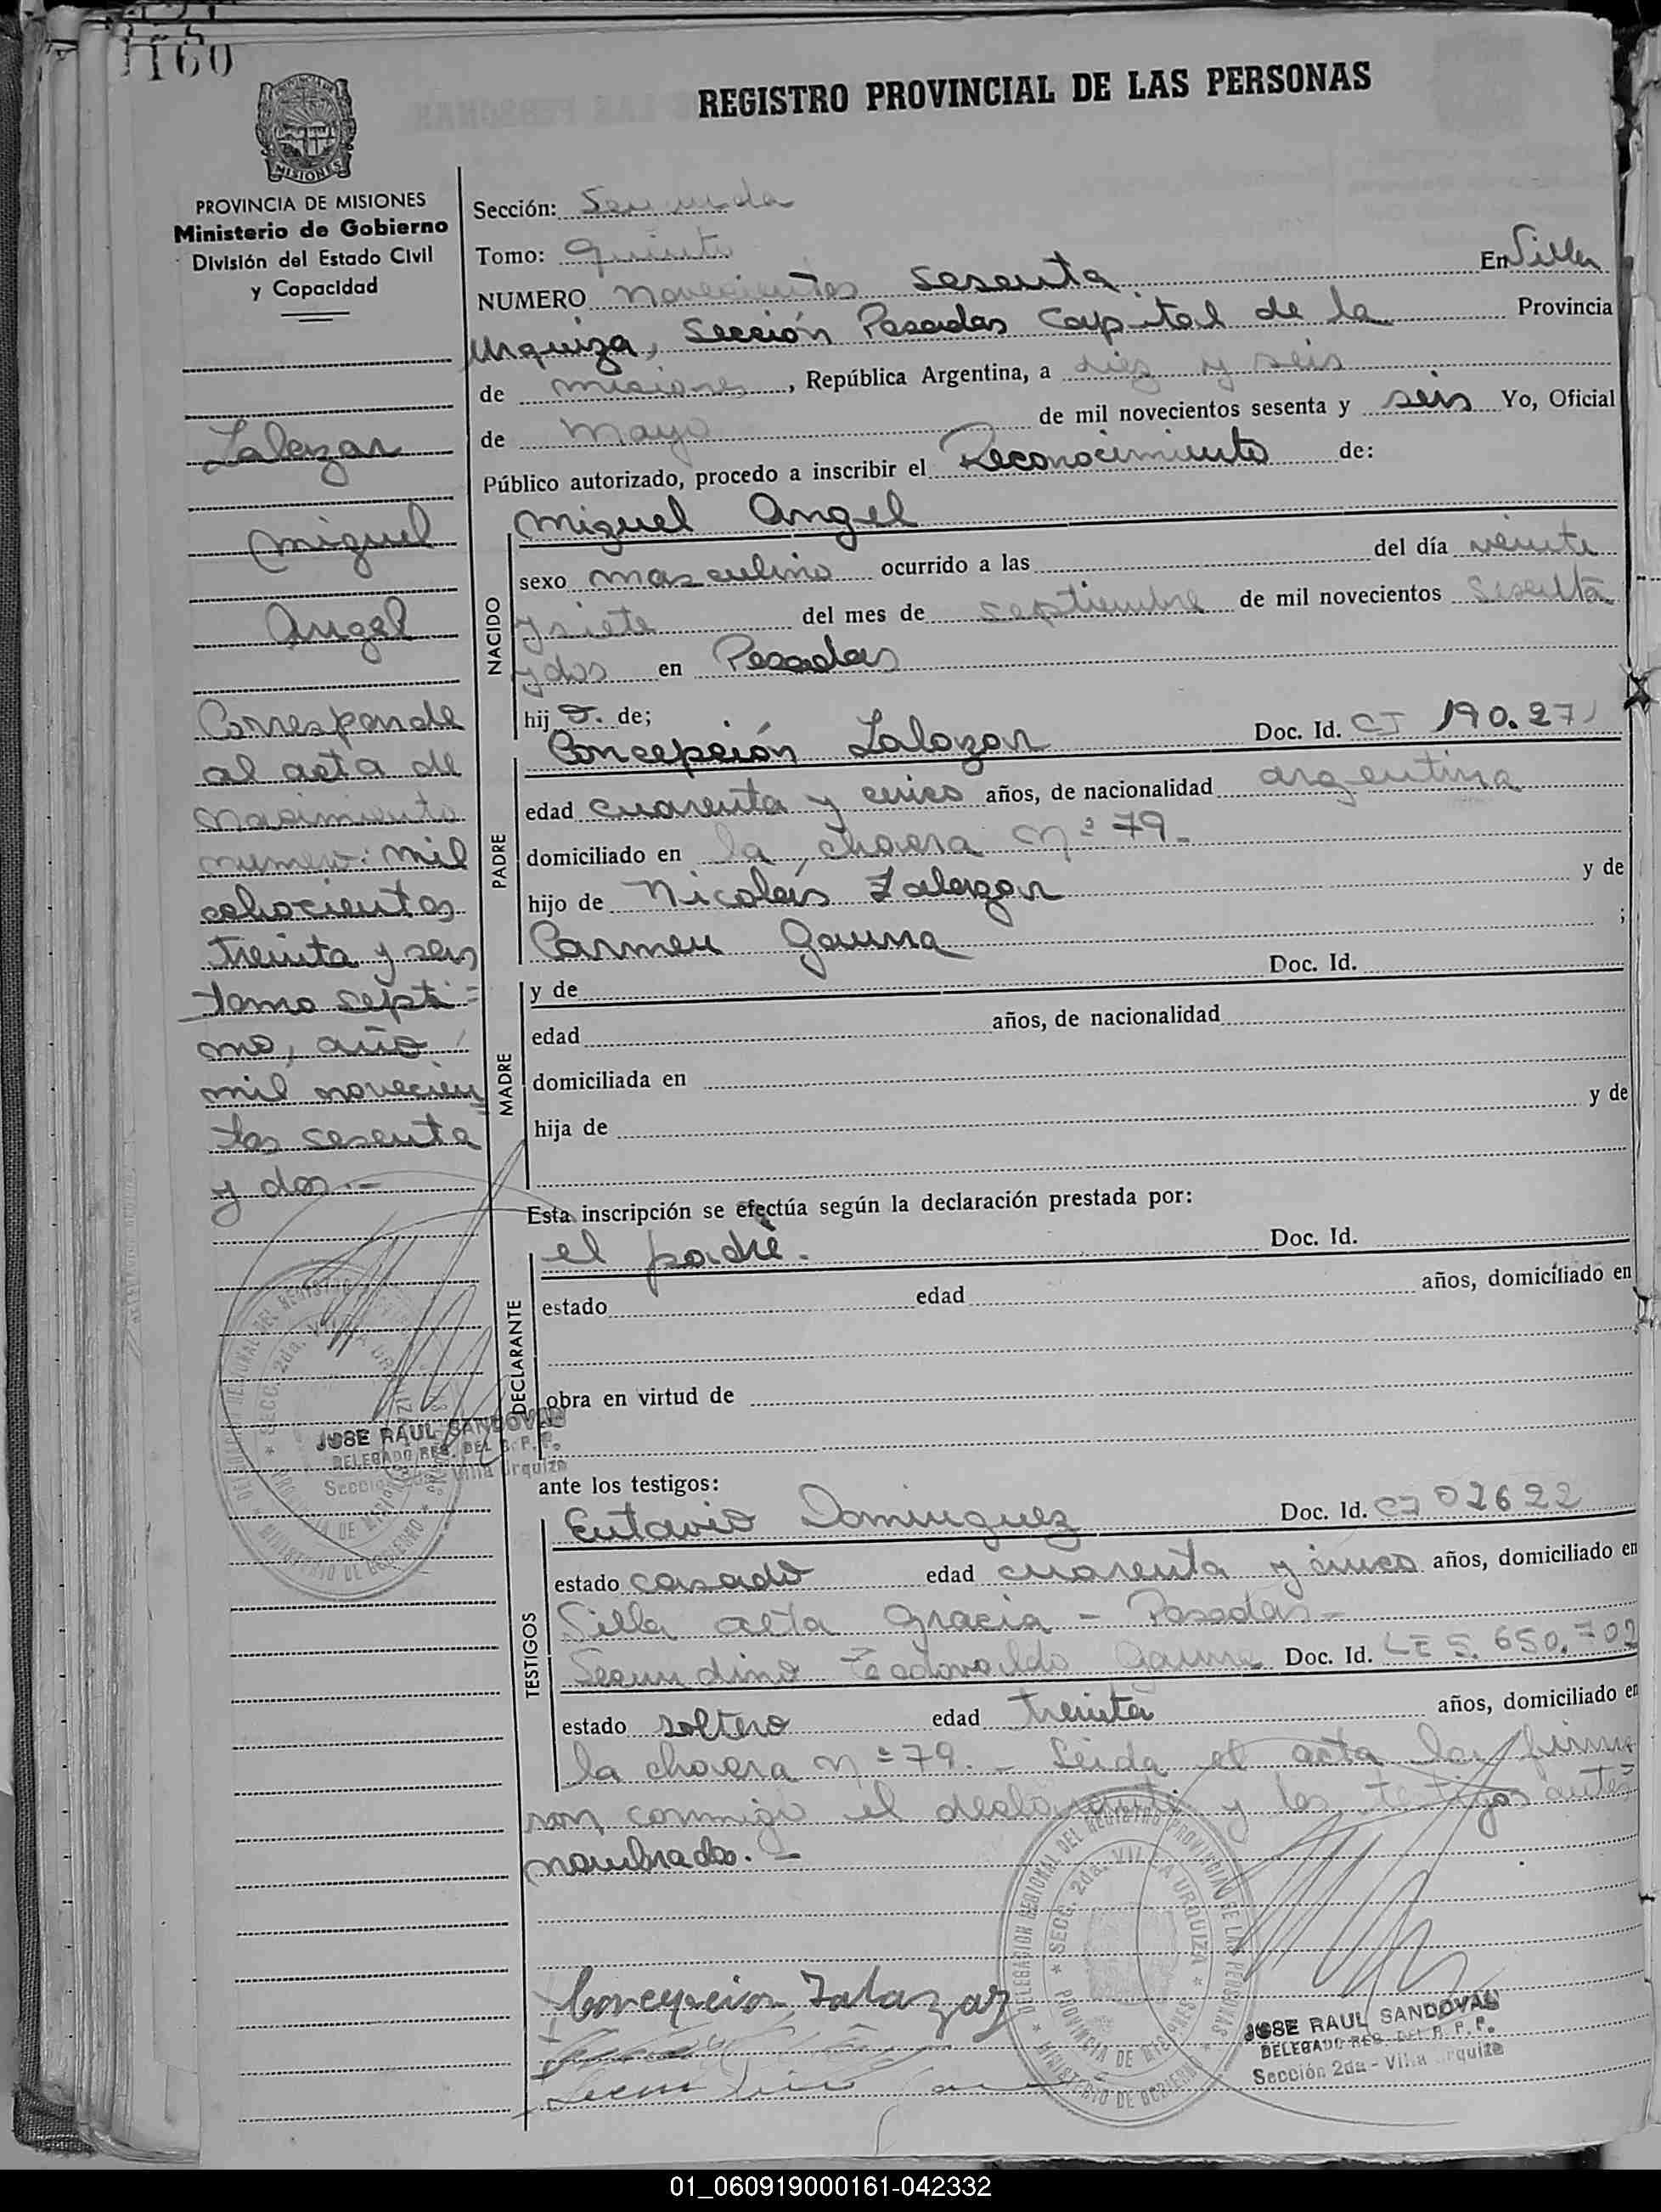 1160
REGISTRO PROVINCIAL DE LAS PERSONAS
MISIONES
PROVINCIA DE MISIONES
Ministerio de Gobierno
División del Estado Civil
y Capacidad
Zalazar
Miguel
Angel
Corresponde
al acta de
nacimiento
numero: mil
ochocientos
treinta y seis
tomo septi=
mo, año
mil novecien
tos sesenta
y dos.-
JOSE RAUL SANDOVAL
DELEGADO REG. DEL R. P. P.
Sección 2da - Villa Urquiza
Sección: Segunda
Tomo: Quinto
NUMERO novecientos sesenta En Villa
Urquiza, Sección Posadas Capital de la Provincia
de misiones, República Argentina, a diez y seis
de mayo de mil novecientos sesenta y seis Yo, Oficial
Público autorizado, procedo a inscribir el Reconocimiento de:
NACIDO
Miguel Angel
sexo masculino ocurrido a las del día veinte
y siete del mes de septiembre de mil novecientos sesenta
y dos en Posadas
hij o. de;
PADRE
Concepción Zalazar Doc. Id. CI 190.271
edad cuarenta y cinco años, de nacionalidad argentina
domiciliado en la chacra nº 79.-
hijo de Nicolás Zalazar y de
Carmen Gauna ;
MADRE
y de Doc. Id.
edad años, de nacionalidad
domiciliada en
hija de y de
Esta inscripción se efectúa según la declaración prestada por:
DECLARANTE
el padre. Doc. Id.
estado edad años, domiciliado en
obra en virtud de
ante los testigos:
TESTIGOS
Dominguez Doc. Id. CI 02622
estado casado edad cuarenta y cinco años, domiciliado en
Villa alta gracia - Posadas -
Segundino Gauna Doc. Id. LE 5.650.702
estado soltero edad treinta años, domiciliado en
la chacra nº 79. - Leida el acta la firma
ron conmigo el declarante y los testigos antes
nombrados. -
DELEGACION REGIONAL DEL REGISTRO PROVINCIAL DE LAS PERSONAS
* SECC. 2da. VILLA URQUIZA *
PROVINCIA DE MISIONES
* MINISTERIO DE GOBIERNO *
Concepcion Zalazar
JOSE RAUL SANDOVAL
DELEGADO REG. DEL R. P. P.
Sección 2da - Villa Urquiza
01_060919000161-042332